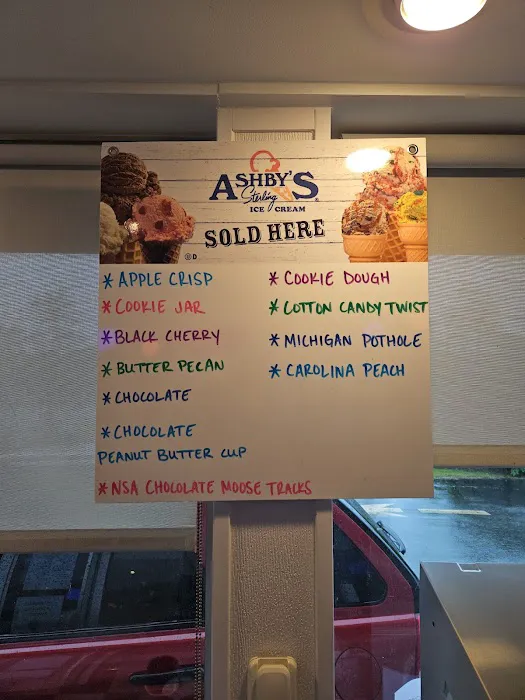 ASHBY'S
Sterling
ICE CREAM
SOLD HERE
* APPLE CRISP
* COOKIE JAR
* BLACK CHERRY
* BUTTER PECAN
* CHOCOLATE
* CHOCOLATE
PEANUT BUTTER CUP
* NSA CHOCOLATE MOOSE TRACKS
* COOKIE DOUGH
* COTTON CANDY TWIST
* MICHIGAN POTHOLE
* CAROLINA PEACH